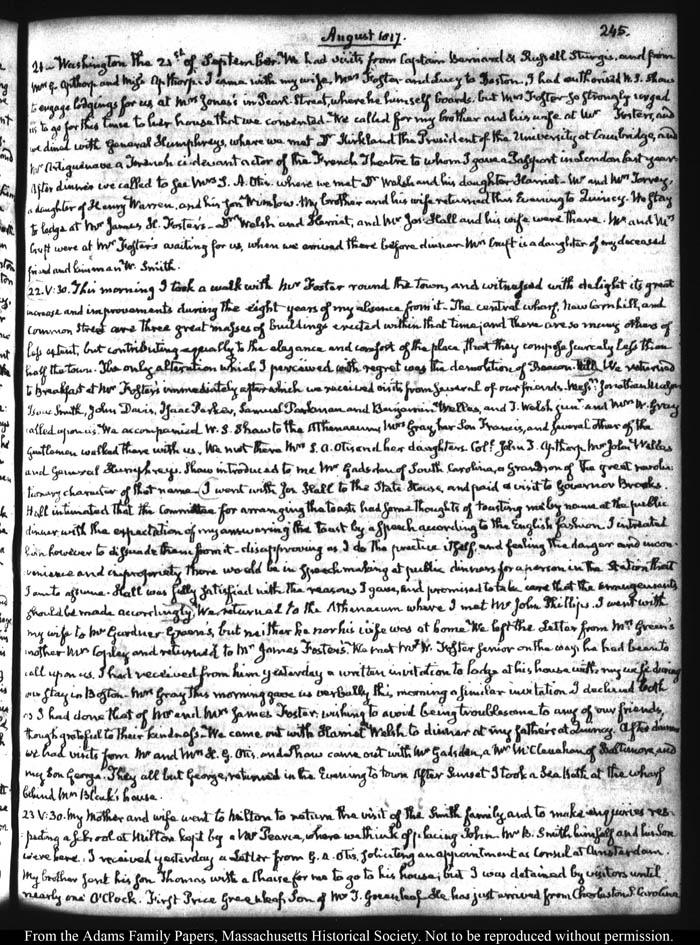 August 1817.
245.
21 — Washington the 21st of September. We had visits from Captain Bernard & Russell Sturgis, and from
Mrs G. Apthorp and Miss Apthorp. I came with my wife, Mrs Foster and Lucy to Boston. I had authorised W. S. Shaw
to engage lodgings for us at Mrs Jones's in Pearl Street, where he himself boards. but Mrs Foster so strongly urged
us to go for this time to her house that we consented. We called for my brother and his wife at Mr Fosters, and
we dined with General Humphreys, where we met Dr Kirkland the President of the University at Cambridge, and
Mr Artiguenave a French ci-devant actor of the French Theatre to whom I gave a Passport in London last year.
After dinner we called to see Mrs S. A. Otis. where we met Dr Walsh and his daughter Harriot — Mr and Mrs Torrey,
a daughter of Henry Warren, and his son Winslow. My brother and his wife returned this Evening to Quincy. We stay
to lodge at Mr James H. Foster's — Dr Welsh and Harriot, and Mr Jos. Hall and his wife were there. Mr and Mrs
Cruft were at Mr Foster's waiting for us, when we arrived there before dinner. Mrs Cruft is a daughter of my deceased
friend and kinsman W. Smith.
22. V:30. This morning I took a walk with Mr Foster round the town, and witnessed with delight its great
increase and improvements during the eight years of my absence from it — The central wharf, New Cornhill, and
Common Street are three great masses of buildings erected within that time, and there are so many others of
less extent, but contributing equally to the elegance and comfort of the place, that they compose scarcely less than
half the town. The only alteration which I perceived with regret was the demolition of Beacon-hill. We returned
to breakfast at Mr Foster's immediately after which we received visits from several of our friends. Messrs Jonathan Mason
Isaac Smith, John Davis, Isaac Parker, Samuel Parkman and Benjamin Welles, and T. Welsh junr and Mrs W. Gray
called upon us. We accompanied W. S. Shaw to the Athenaeum, Mrs Gray, her Son Francis, and several other of the
Gentlemen walked there with us. We met there Mrs S. A. Otis and her daughters. Coll. John T. Apthorp, Mr John Welles
and General Humphreys. Shaw introduced to me Mr Gadsden of South Carolina, a Grandson of the great revolu-
tionary character of that name — I went with Jos. Hall to the State House, and paid a visit to Governor Brooks.
Hall intimated that the Committee for arranging the toasts had some thoughts of toasting me by name at the public
dinner with the expectation of my answering the toast by a speech according to the English fashion. I intreated
him however to dissuade them from it — disapproving as I do the practice itself, and feeling the danger and incon-
venience and impropriety there would be in speech making at public dinners for a person in the Station that
I am to assume. Hall was fully satisfied with the reasons I gave, and promised to take care that the arrangements
should be made accordingly. We returned to the Athenaeum where I met Mr John Phillips. I went with
my wife to Mr Gardner Greene's, but neither he nor his wife was at home. We left the Letter from Mrs Green's
mother Mrs Copley and returned to Mr James Foster's. We met Mr W. Foster senior on the way; he had been to
call upon us. I had received from him yesterday a written invitation to lodge at his house with my wife during
our stay in Boston. Mrs Gray this morning gave us verbally this morning a similar invitation. I declined both
as I had done that of Mr and Mrs James Foster, wishing to avoid being troublesome to any of our friends,
though grateful to their kindness. We came out with Harriet Welsh to dinner at my father's at Quincy. After dinner
we had visits from Mr and Mrs H. G. Otis, and Shaw came out with Mr Gadsden, a Mr McClenahan of Baltimore, and
my Son George. They all but George, returned in the Evening to town. After Sunset I took a Sea Bath at the wharf
behind Mrs Black's house.
23 V:30. My Mother and wife went to Milton to return the visit of the Smith family, and to make enquiries res-
pecting a School at Milton kept by a Mr Pearce, where we think of placing John. Mr B. Smith himself and his Son
were here. I received yesterday a Letter from G. A. Otis, soliciting an appointment as Consul at Amsterdam.
My brother sent his son Thomas with a Chaise for me to go to his house; but I was detained by visitors until
nearly one O'Clock. First Price Greenleaf, Son of Mr T. Greenleaf. He has just arrived from Charleston S. Carolina
From the Adams Family Papers, Massachusetts Historical Society. Not to be reproduced without permission.